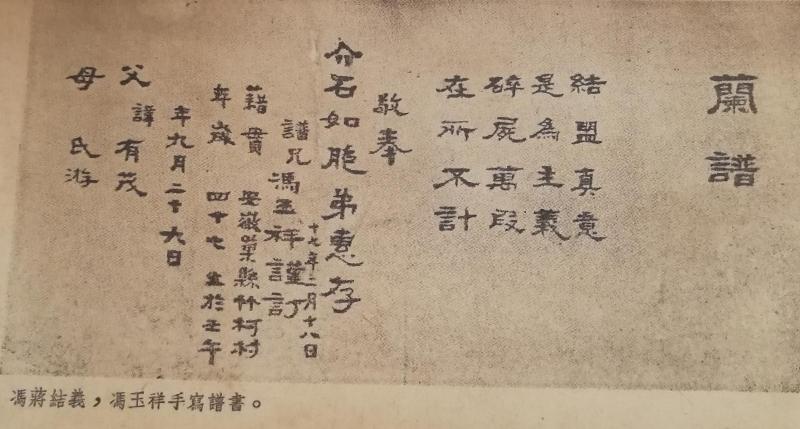 蘭譜
結盟真意
是為主義
碎屍萬段
在所不計
敬奉
介石如胞弟惠存
譜兄馮玉祥謹訂
十七年二月十八日
籍貫 安徽巢縣竹柯村
年歲 四十七 生於壬午
年九月二十六日
父 諱有茂
母 氏游
馮蔣結義，馮玉祥手寫譜書。